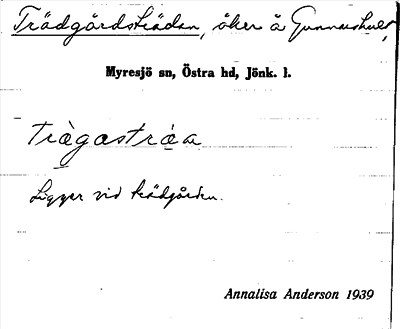 Trädgårdsträdan, åker å Gunnarshult,
Myresjö sn, Östra hd, Jönk. l.
Trägasträa
Ligger vid trädgården.
Annalisa Anderson 1939